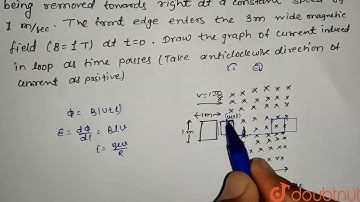 being removed towards right at a constant speed of
1 m/sec. The front edge enters the 3m wide magnetic
field (B=1T) at t=0. Draw the graph of current induced
in loop as time passes (Take anticlockwise direction of
current as positive)
v=1
1m
ϕ = B(vtl)
ε = dϕ/dt = Blv
doubtnut